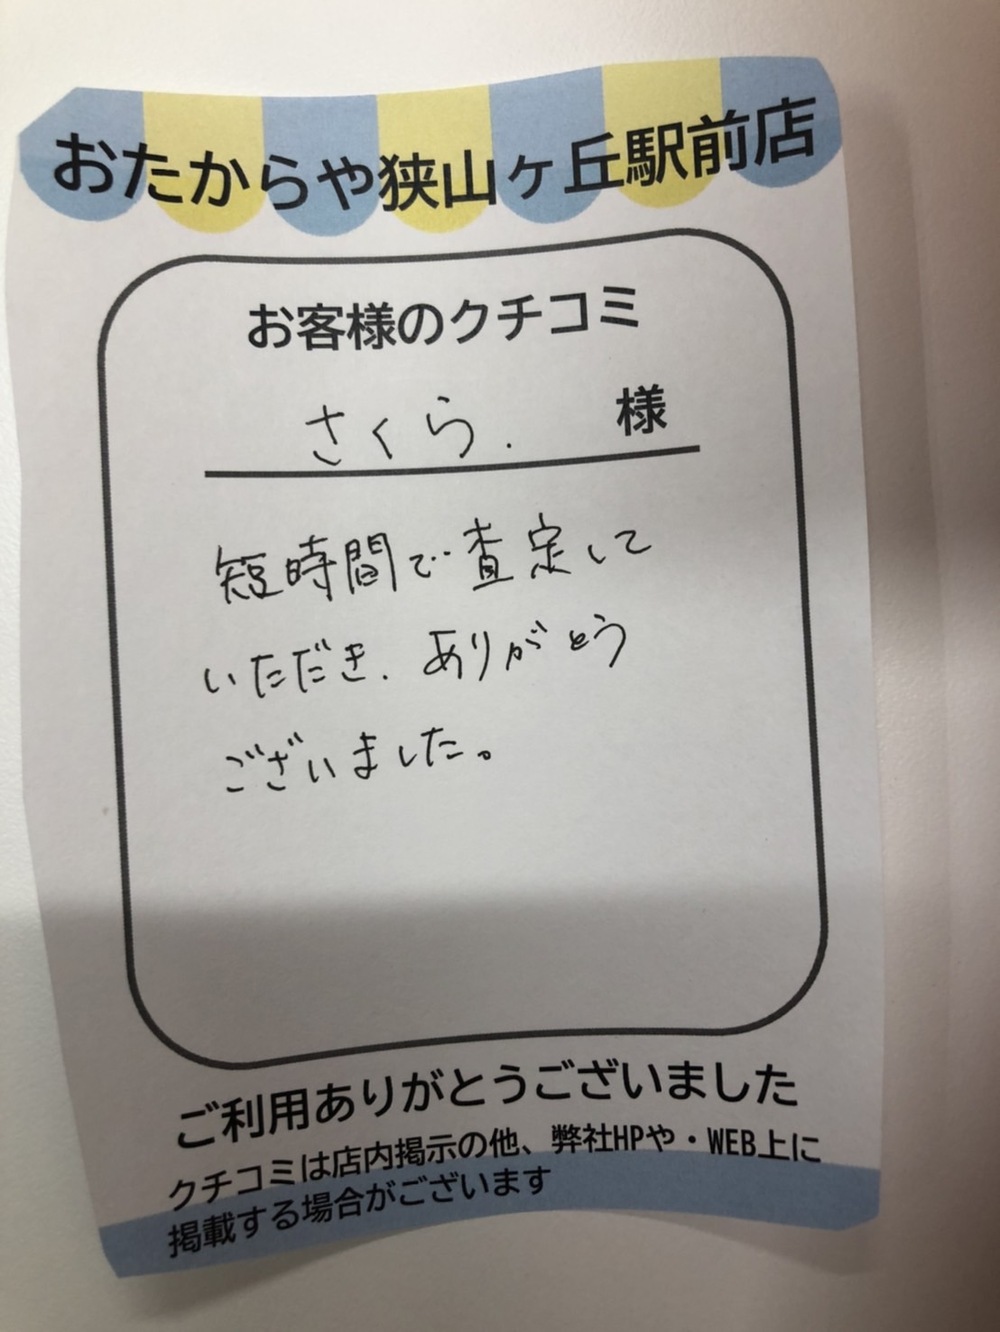 おたからや狭山ヶ丘駅前店
お客様のクチコミ
さくら. 様
短時間で査定して
いただき、ありがとう
ございました。
ご利用ありがとうございました
クチコミは店内掲示の他、弊社HPや・WEB上に
掲載する場合がございます